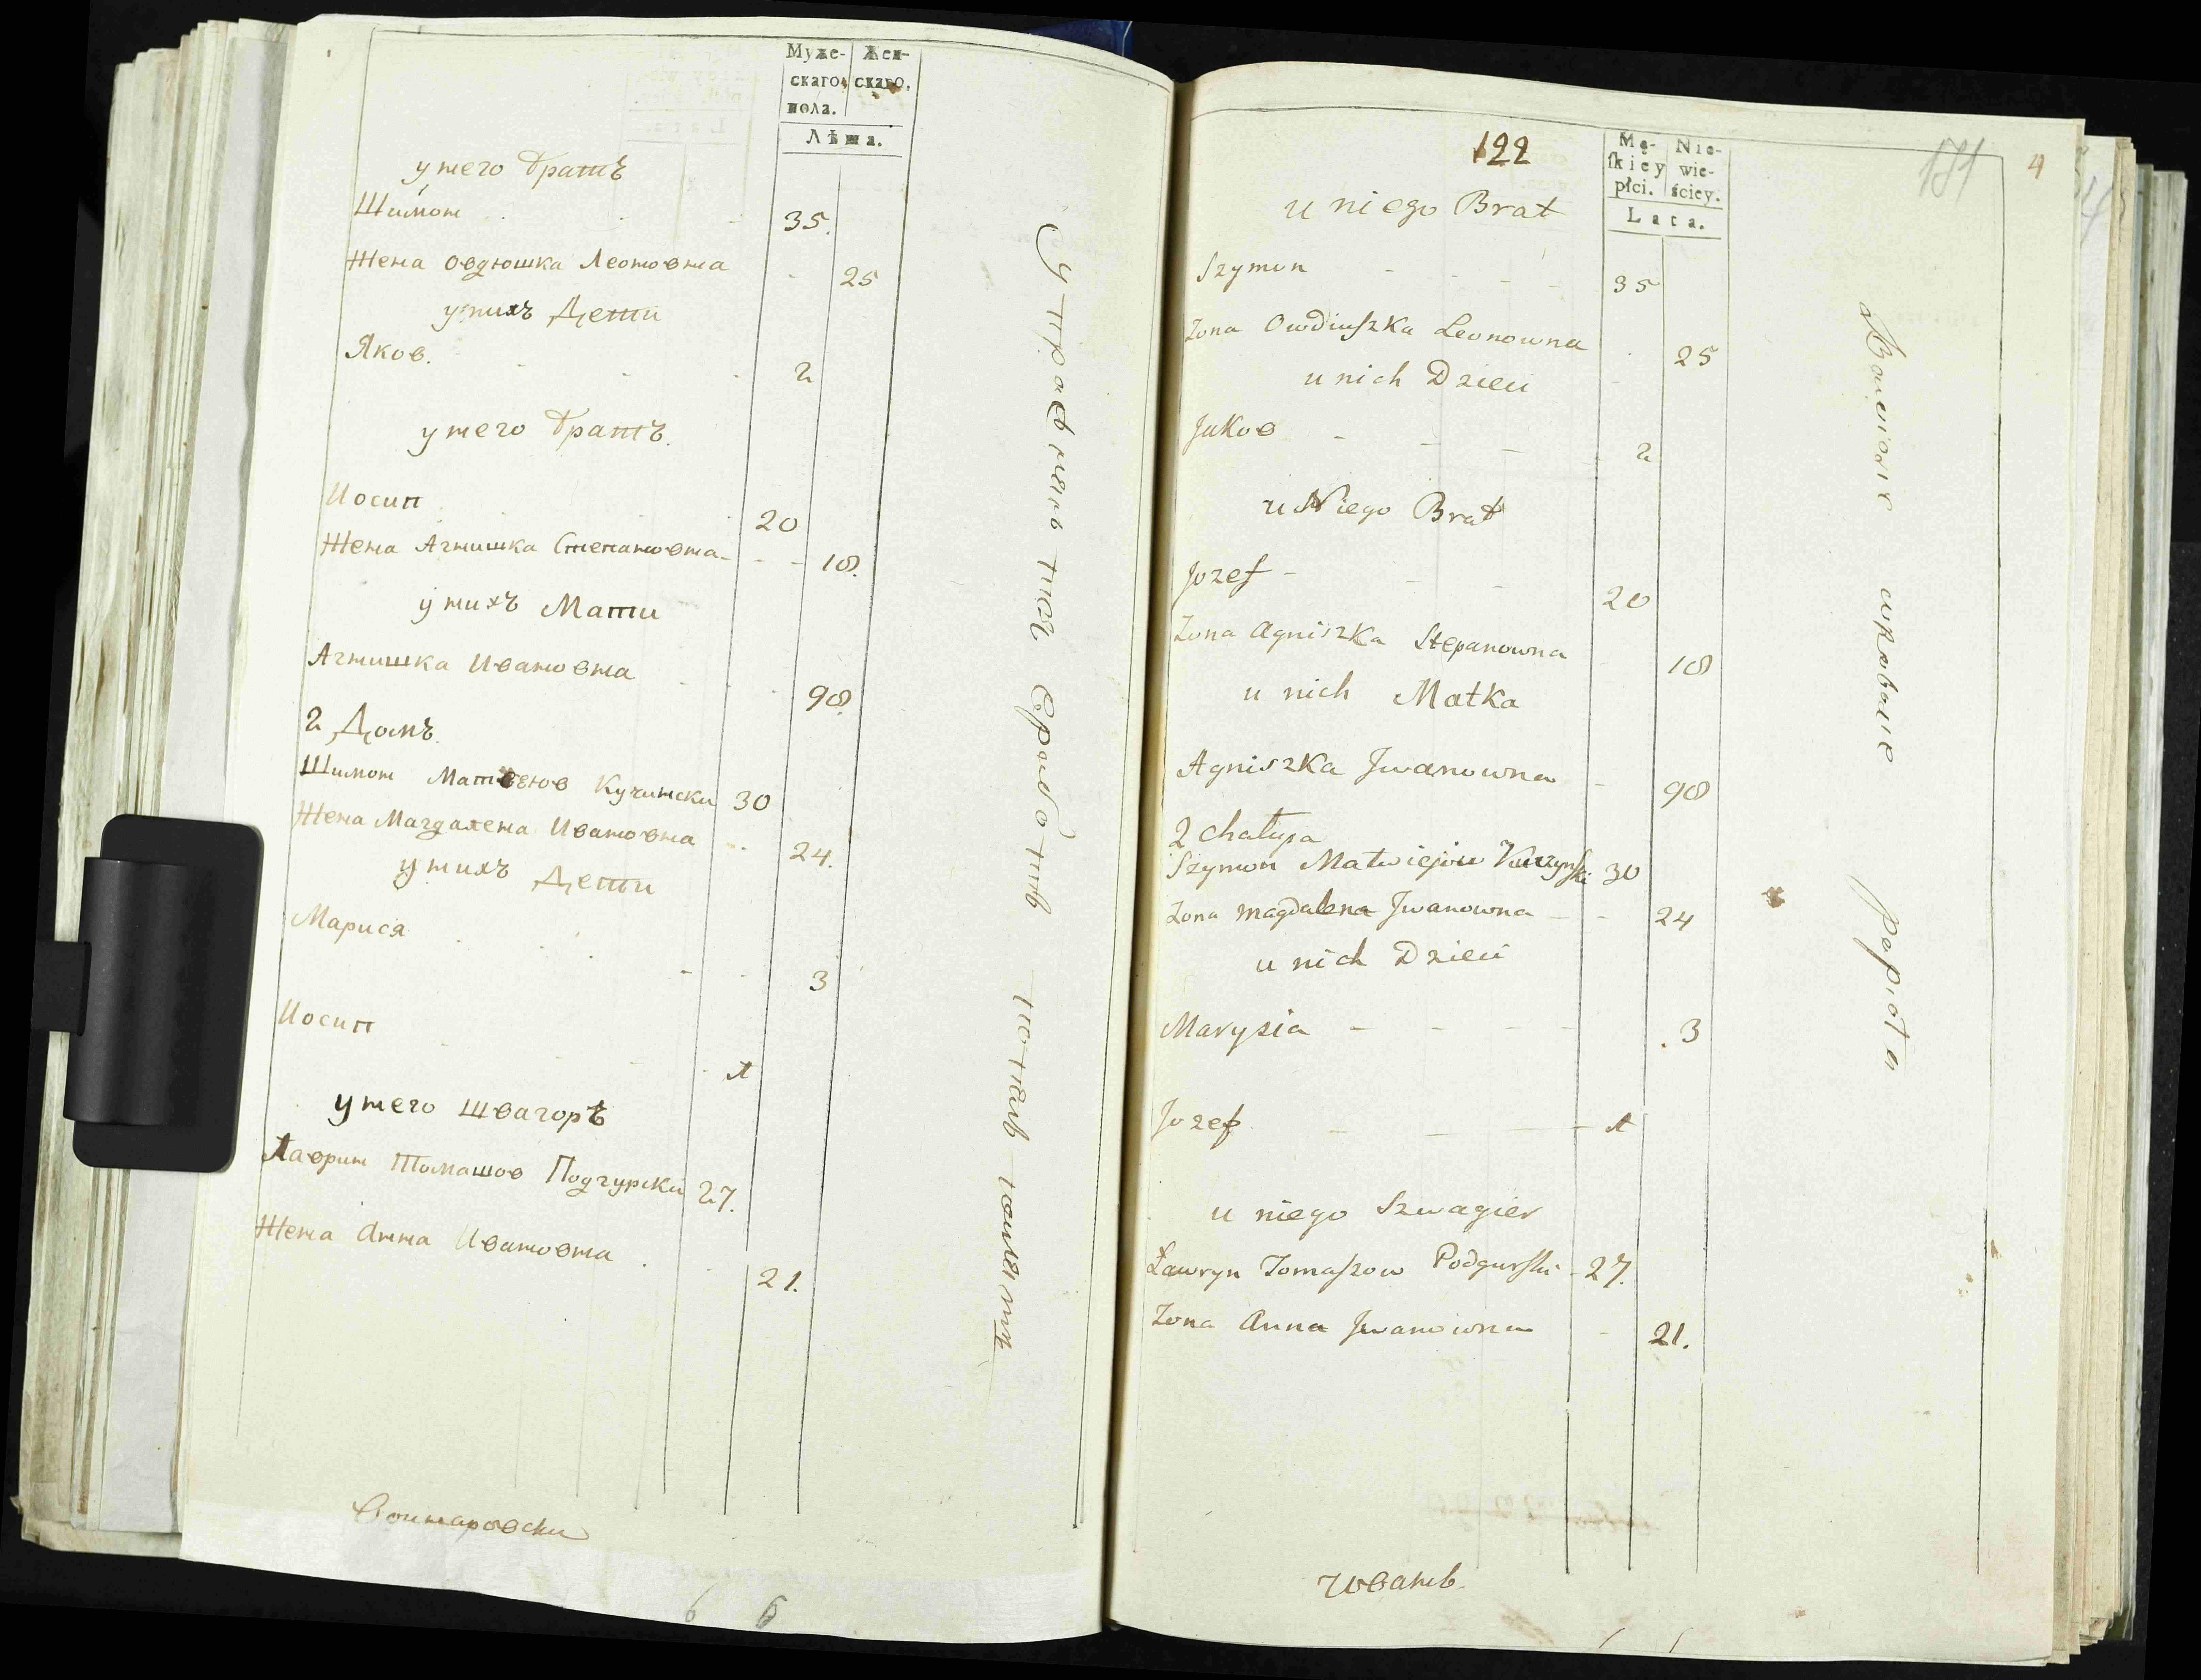 Муже-
скаго
пола.
Жен-
скаго.
Лѣта.
у него братъ
Шимон 35.
Жена Овдюшка Леоновна 25
у нихъ Дети
Яков. 2
у него братъ.
Иосип 20
Жена Агнишка Степановна 18.
у нихъ Мати
Агнишка Ивановна 98.
2 Домъ
Шимон Матвеюв Кучински 30
Жена Магдалена Ивановна 24.
у нихъ Дети
Марися 3
Иосип 1
у него Швагоръ
Лаврин Томашов Подгурски 27.
Жена Анна Ивановна 21.
122
181
4
Mę-
skiey
płci.
Nie-
wie-
ściey.
Lata.
u niego Brat
Szymon 35
Zona Owdiuszka Leonowna 25
u nich Dzieci
Jakob 2
u Niego Brat
Jozef 20
Zona Agniszka Stepanowna 18
u nich Matka
Agniszka Jwanowna 98
2 Chałupa
Szymon Matwiejów Kuczynski 30
Zona Magdalena Jwanowna 24
u nich Dzieci
Marysia 3
Jozef 1
u niego Szwagier
Ławryn Tomaszow Podgurski 27.
Zona Anna Jwanowna 21.
Иванъ